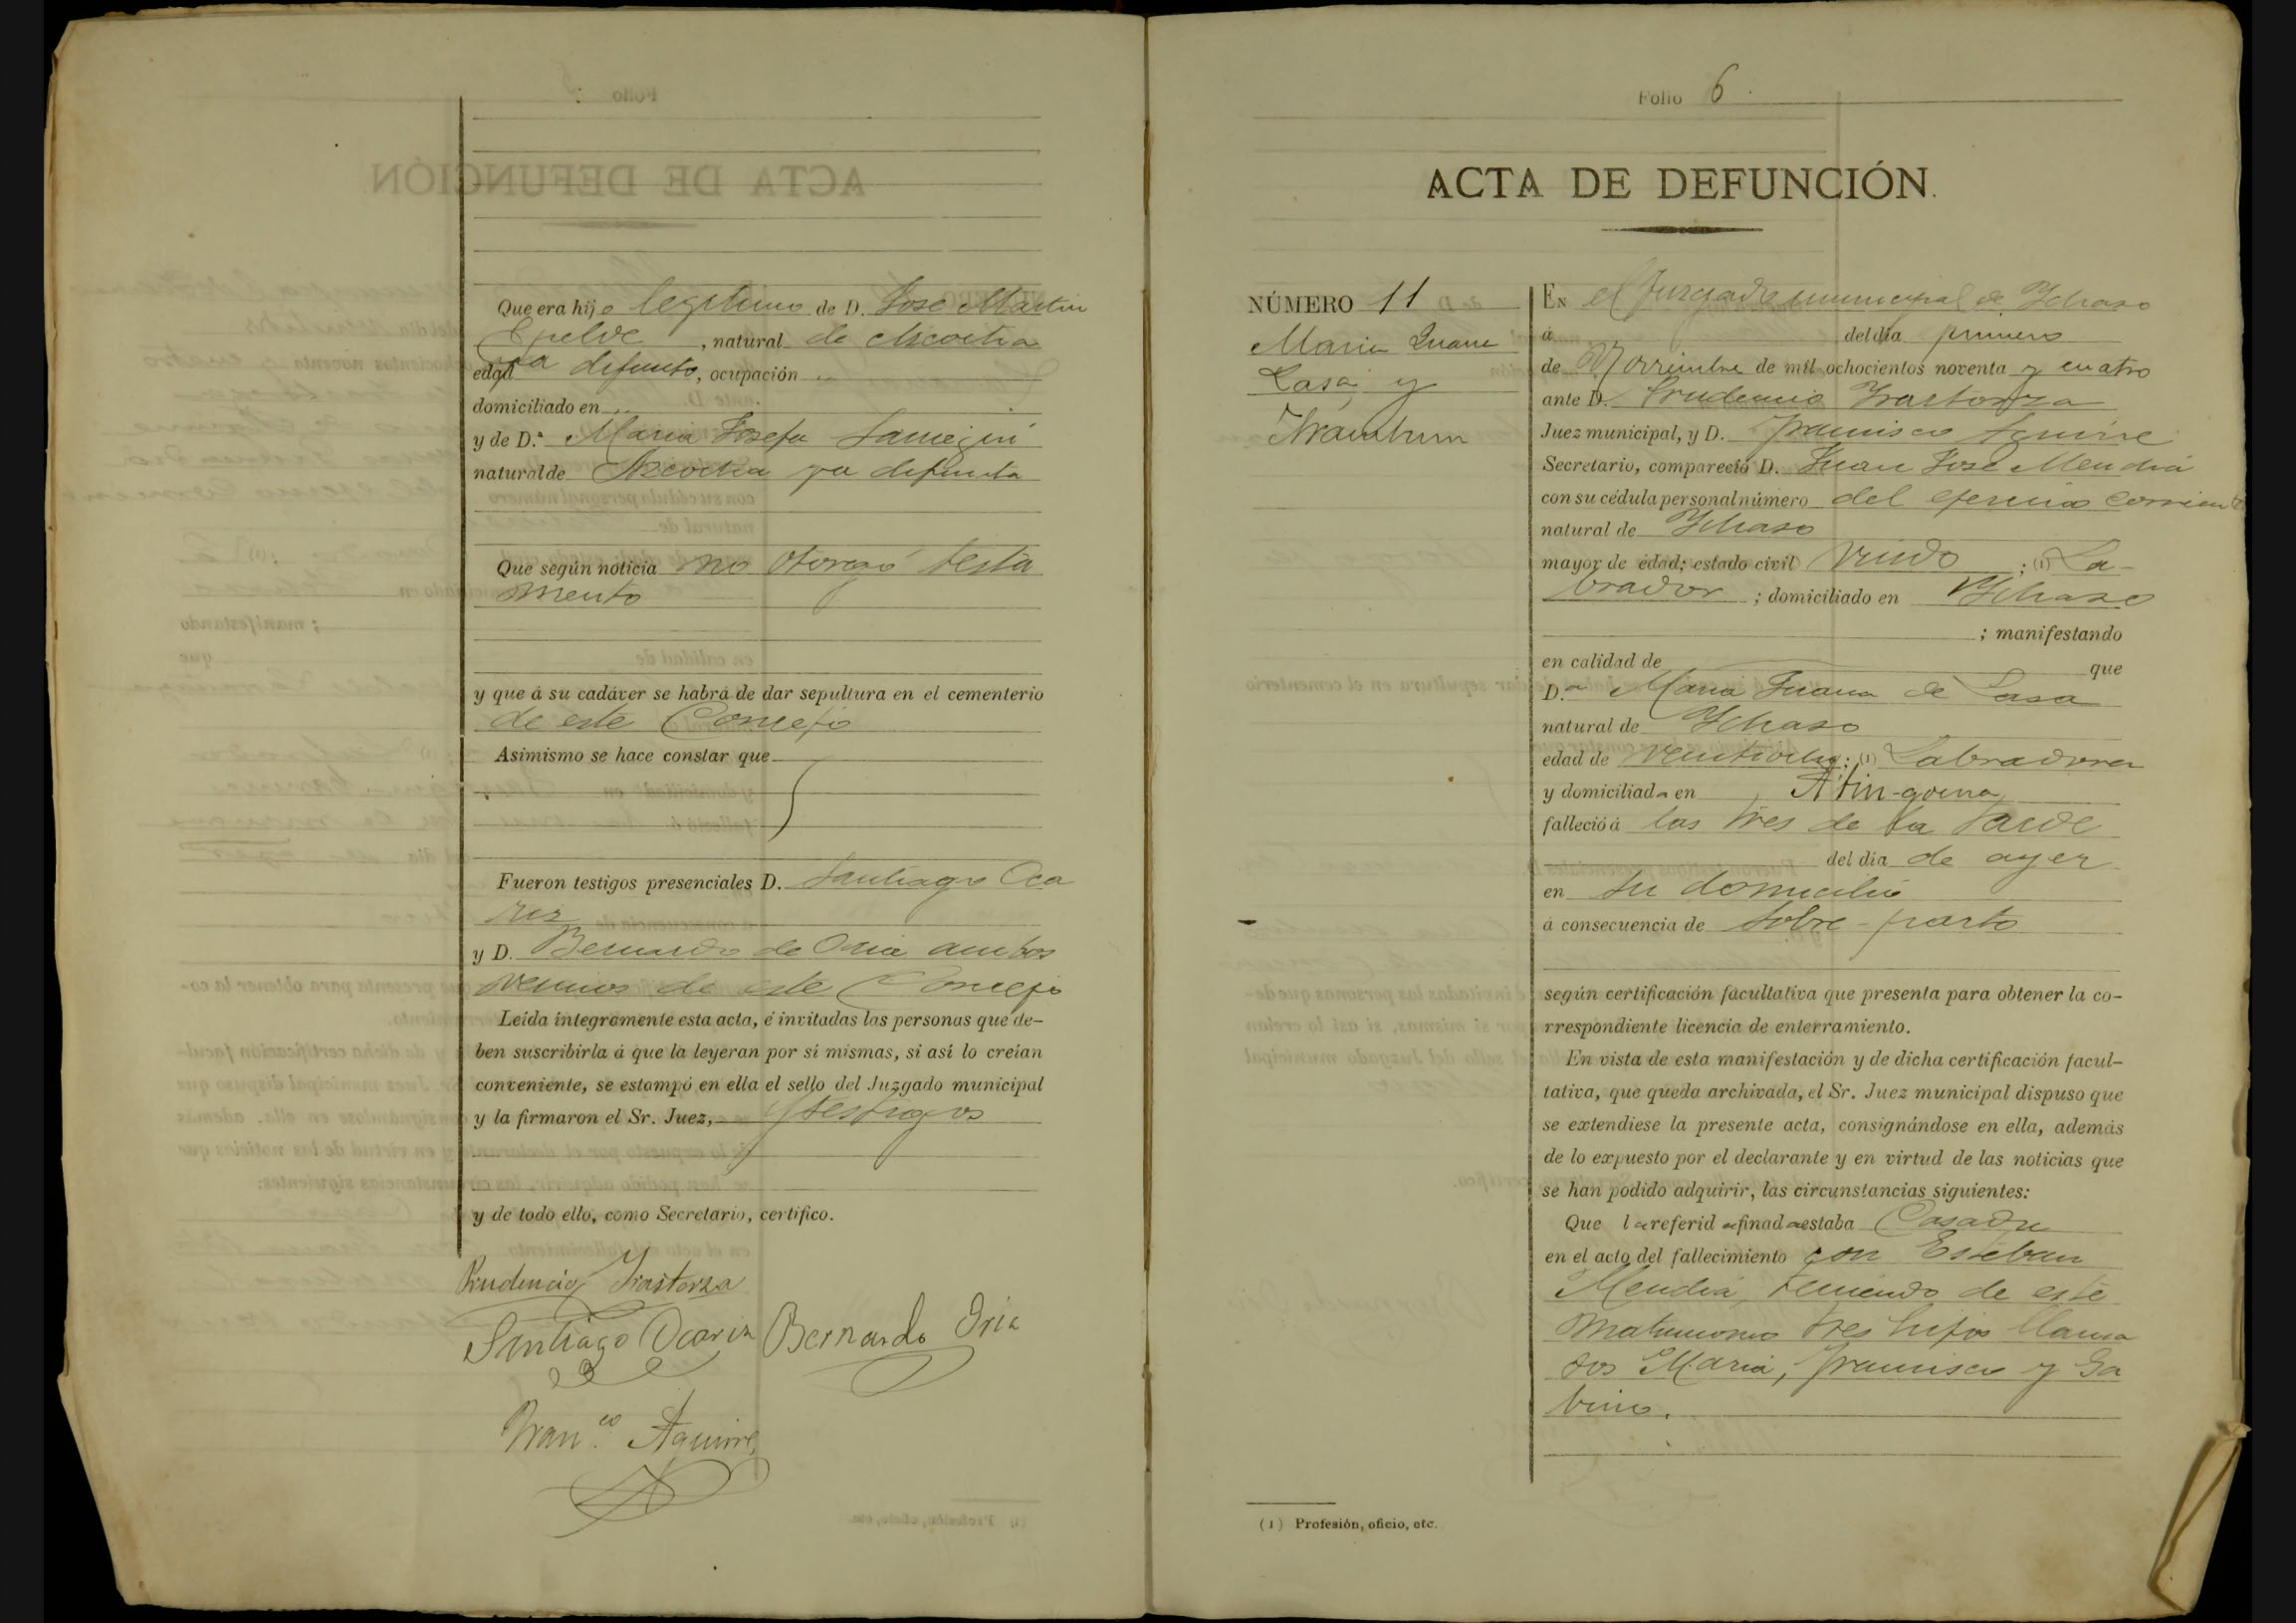 Que era hijo legitimo de D. José Martin
Epelde, natural de Ascoitia
edad ya defunto, ocupación „
domiciliado en „
y de D.ª Maria Josefa
natural de Azcoitia ya defunta
Que según noticia no otorgó testa
mento
y que á su cadáver se habrá de dar sepultura en el cementerio
de este Concejo
Asimismo se hace constar que
Fueron testigos presenciales D. Santiago Oca
riz
y D. Bernardo de Oria ambos
vecinos de este Concejo
Leída íntegramente esta acta, é invitadas las personas que de-
ben suscribirla á que la leyeran por sí mismas, si así lo creían
conveniente, se estampó en ella el sello del Juzgado municipal
y la firmaron el Sr. Juez, y testigos
y de todo ello, como Secretario, certifico.
Prudencio Irastorza
Santiago Ocariz Bernardo Oria
Fran.co Aguirre
Folio 6
ACTA DE DEFUNCIÓN.
NÚMERO 11
Maria Juana
Lasa y
En el Juzgado municipal de Ychaso
á del día primero
de Noviembre de mil ochocientos noventa y cuatro
ante D. Prudencio Yrastorza
Juez municipal, y D. Francisco Aguirre
Secretario, compareció D. Juan José Mendia
con su cédula personal número del ejercicio corriente
natural de Ychaso
mayor de edad; estado civil Viudo ; (1) La-
brador ; domiciliado en Ychaso
; manifestando
en calidad de que
D.ª Maria Juana de Lasa
natural de Ychaso
edad de ; (1) Labradora
y domiciliada en Atin-goena
falleció á las tres de la tarde
del día de ayer
en su domicilio
á consecuencia de sobre-parto
según certificación facultativa que presenta para obtener la co-
rrespondiente licencia de enterramiento.
En vista de esta manifestación y de dicha certificación facul-
tativa, que queda archivada, el Sr. Juez municipal dispuso que
se extendiese la presente acta, consignándose en ella, además
de lo expuesto por el declarante y en virtud de las noticias que
se han podido adquirir, las circunstancias siguientes:
Que la referida finada estaba Casada
en el acto del fallecimiento con Esteban
Mendia, teniendo de este
matrimonio tres hijos llama
dos Maria, Francisco y Ga
bino.
(1) Profesión, oficio, etc.